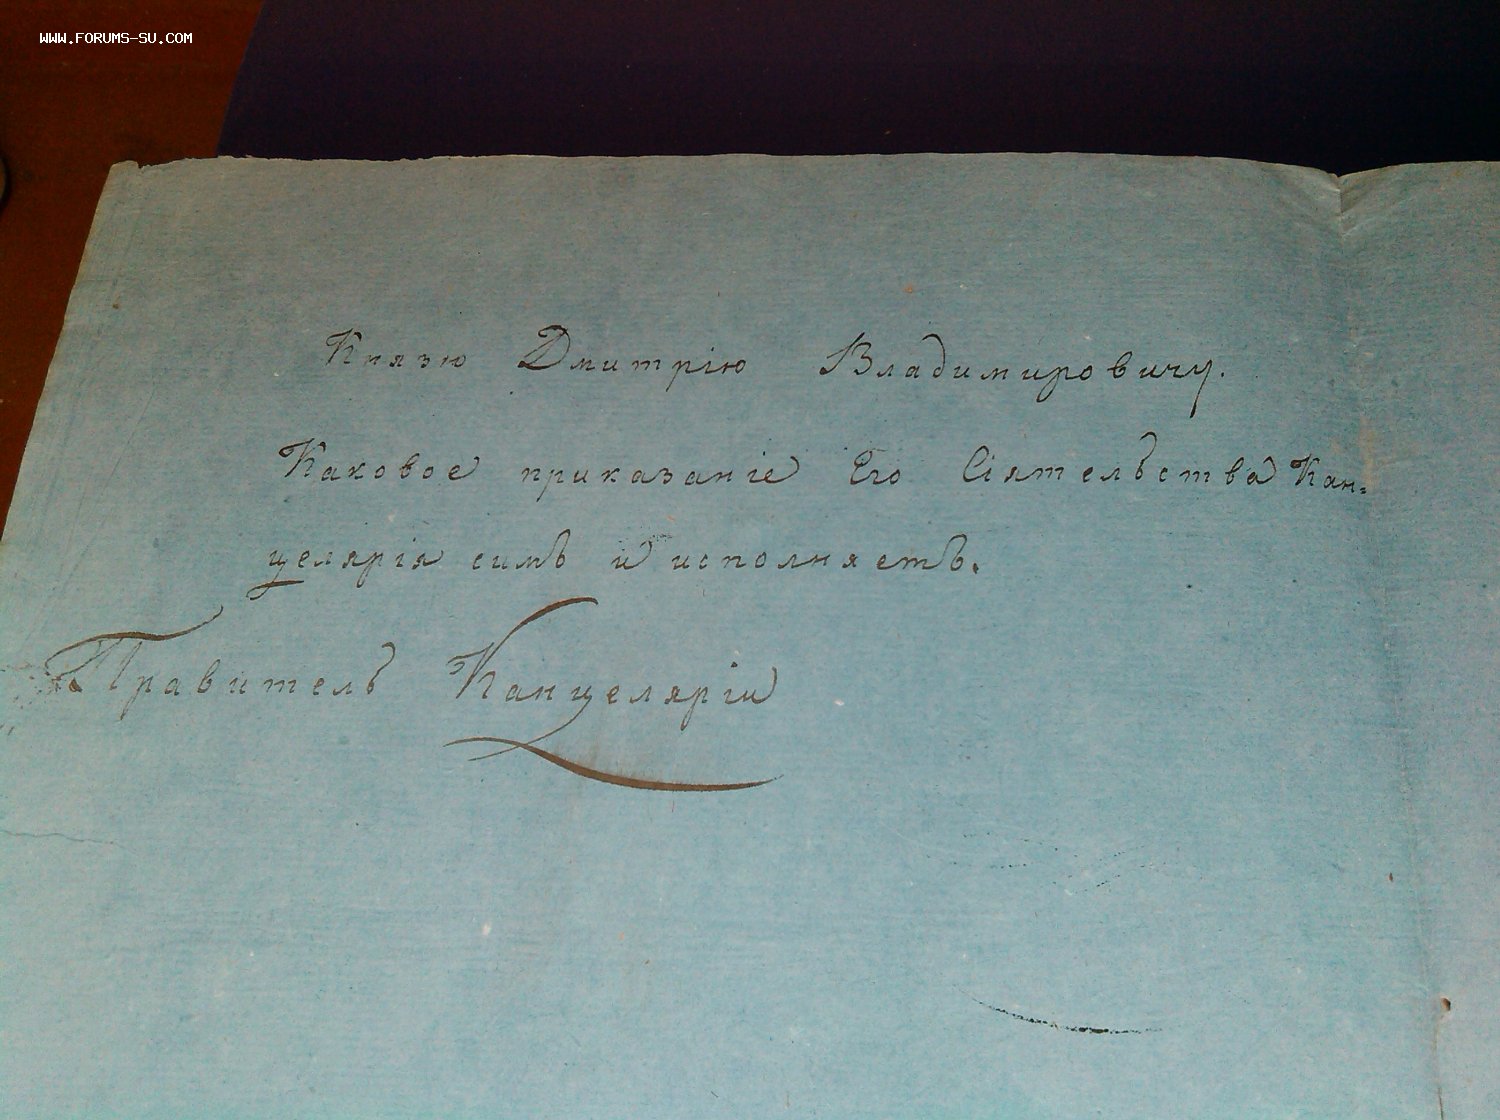 WWW.FORUMS-SU.COM
Князю Дмитрію Владимировичу.
Каковое приказаніе Его Сіятельства Кан=
целярія симъ и исполняетъ.
Правитель Канцеляріи